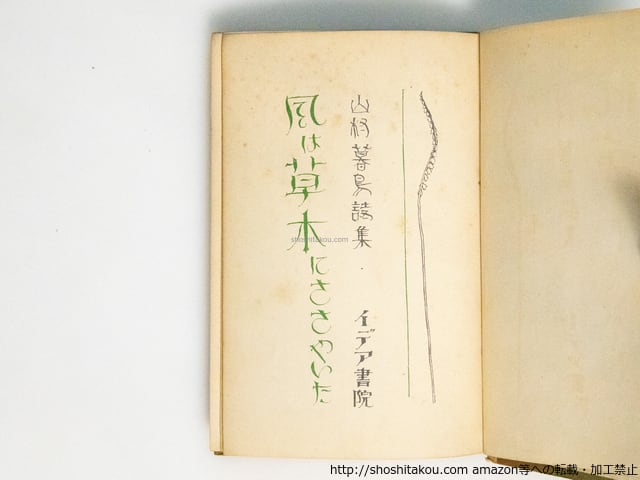 山村暮鳥詩集
イデア書院
風は草木にささやいた
shoshitakou.com
http://shoshitakou.com amazon等への転載・加工禁止